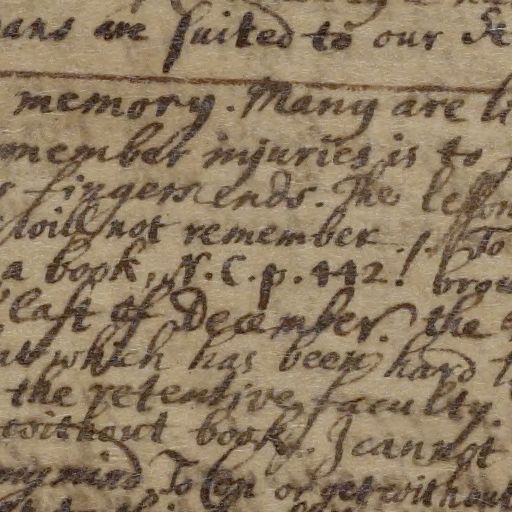 ans are suited to our
memory. Many are li
member injuries is to
fingers ends. The lesson
will not remember. To
a book, N.C.p. 442!
last of December. the
which has been hard
the retentive faculty.
without book. I cannot
my mind To con or get without